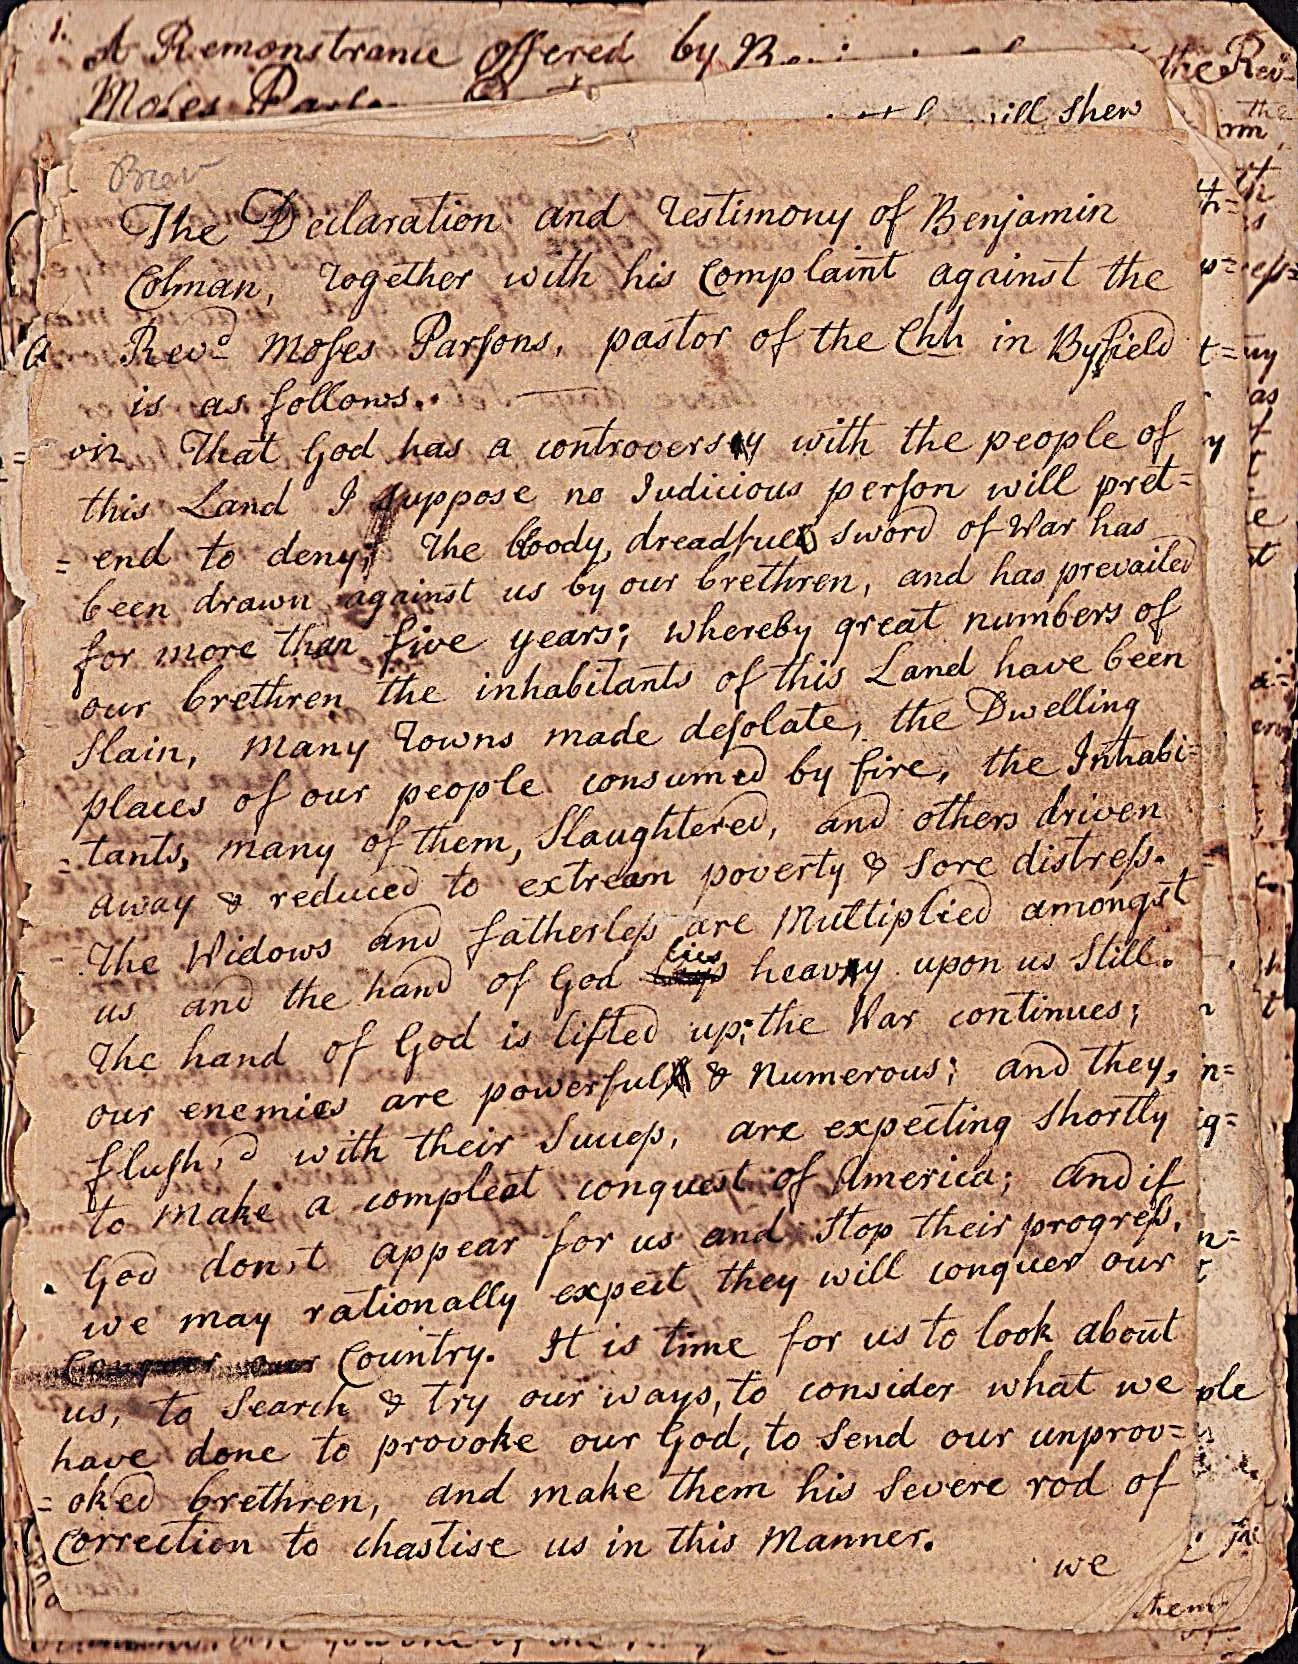 1. A Remonstrance offered by the Revd
Moses
will shew
The Declaration and Testimony of Benjamin
Colman, Together with his Complaint against the
Revd Moses Parsons, pastor of the Chh in Byfield
is as follows..
viz That God has a controversy with the people of
this Land I suppose no Judicious person will pret=
= end to deny; The bloody, dreadfull sword of War has
been drawn against us by our brethren, and has prevailed
for more than five years; whereby great numbers of
our brethren the inhabitants of this Land have been
slain, many Towns made desolate, the Dwelling
places of our people consumed by fire, the Inhabi=
= tants, many of them, Slaughtered, and others driven
away & reduced to extream poverty & Sore distress.
The Widows and fatherless are Multiplied amongst
us and the hand of God lies heavy upon us Still.
The hand of God is lifted up; the War continues;
our enemies are powerful & Numerous; and they,
flush,d with their Success, are expecting shortly
to make a compleat conquest of America; and if
God don,t appear for us and Stop their progress,
we may rationally expect they will conquer our
Conquer our Country. It is time for us to look about
us, to Search & try our ways, to consider what we
have done to provoke our God, to Send our unprov=
= oked brethren, and make them his Severe rod of
Correction to chastise us in this Manner.
we
them